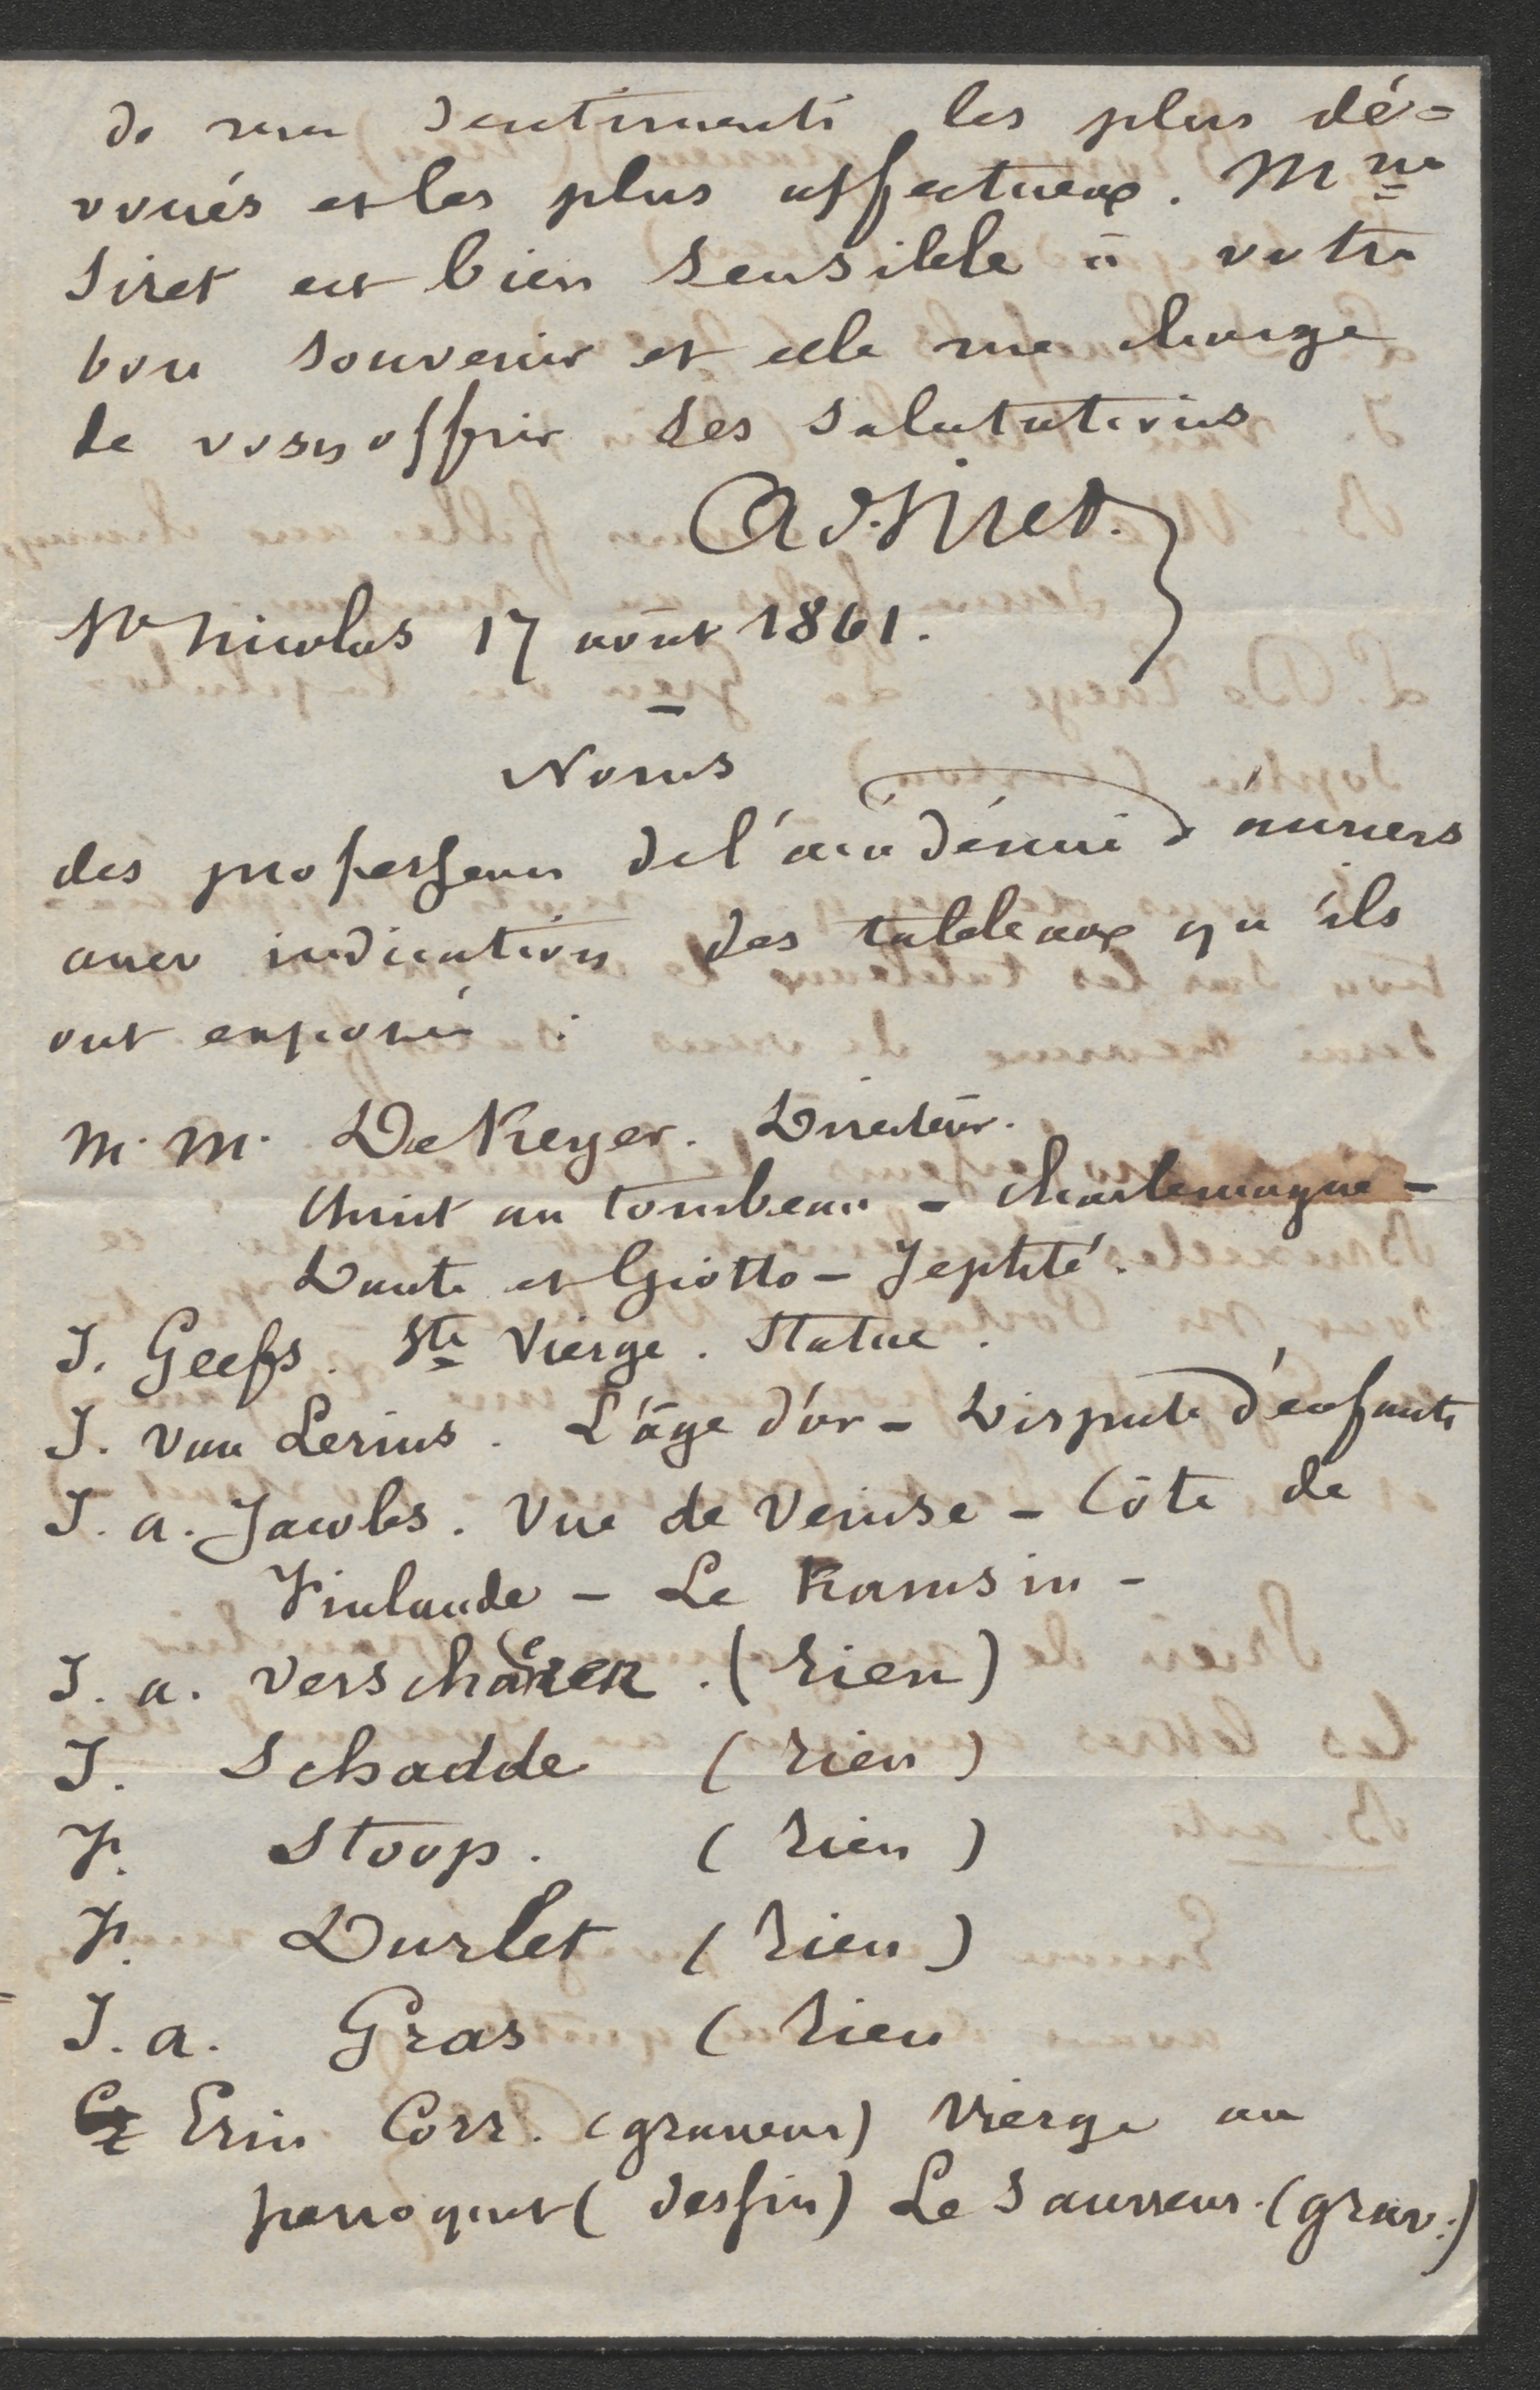 de mes sentiments les plus dé=
voués et les plus affectueux. Mme
Siret est bien sensible à votre
bon souvenir et elle me charge
de vous offrir ses salutations
Ad. Siret.
St Nicolas 17 août 1861.
Noms
des professeurs de l'académie d'anvers
avec indication des tableaux qu'ils
ont exposés :
M. M. De Keyser. Directeur.
Christ au tombeau - Charlemagne -
Dante et Giotto - Jephté.
J. Geefs. Ste Vierge. Statue.
J. Van Lerius. L'âge d'or - Dispute d'enfants
J. a. Jacobs. Vue de Venise - Côte de
Finlande - Le Kamsin -
J. a. Verschaeren. (rien)
J. Schadde (rien)
F. Stoop. (rien)
F. Durlet (rien)
J. a. Gras (rien
Erin Corr. (graveur) Vierge au
perroquet (dessin) Le Sauveur. (grav:)